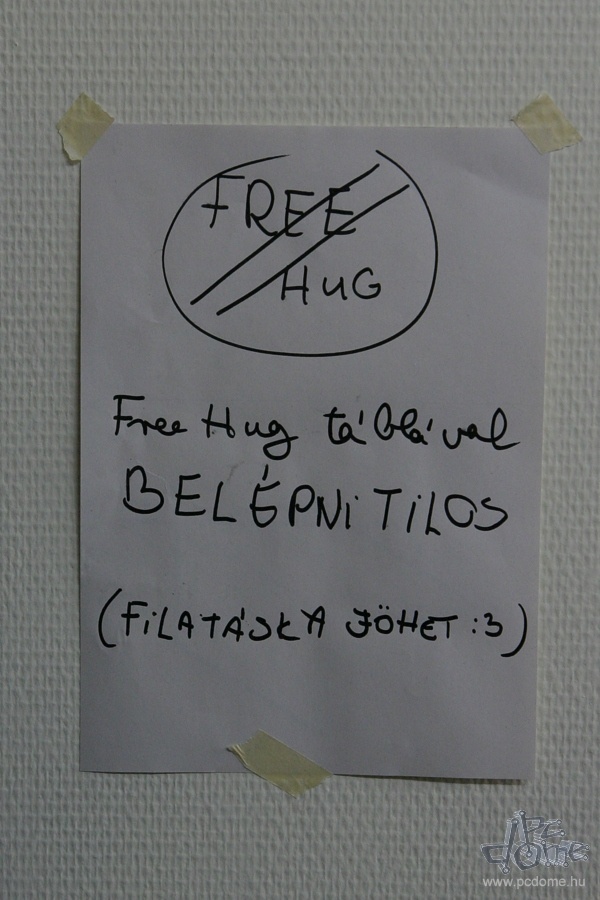 FREE
HUG
Free Hug táblával
BELÉPNI TILOS
(FILATÁSKA JÖHET :3)
PC
dome
www.pcdome.hu